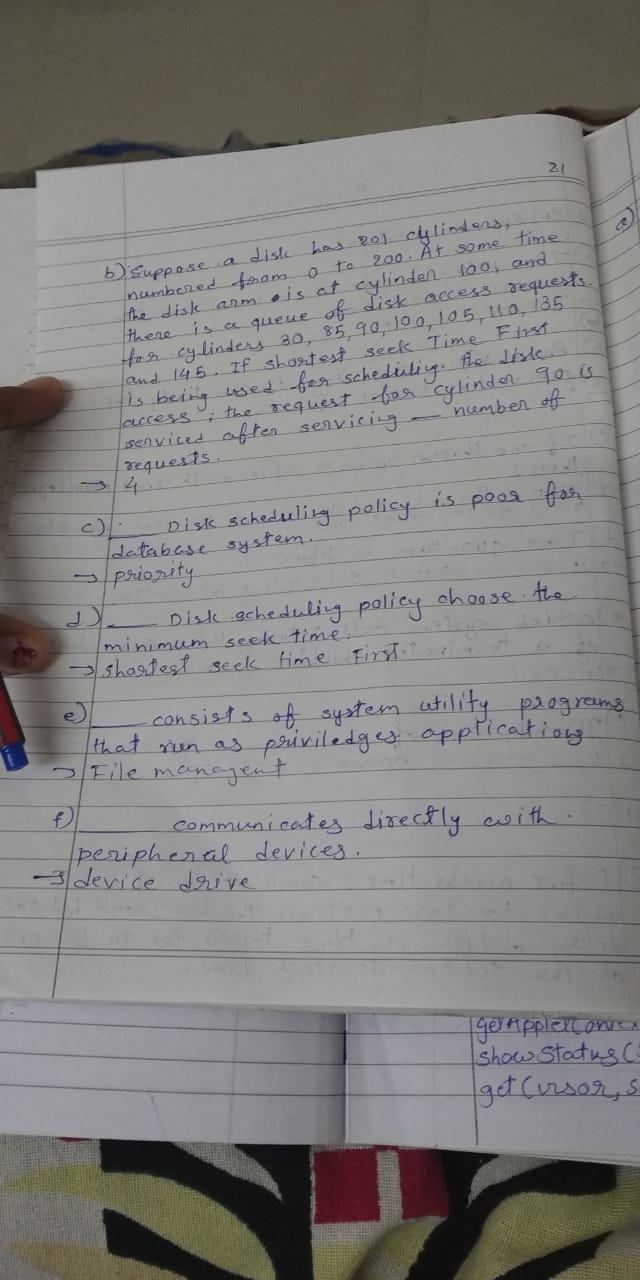 21
b) Suppose a disk has 201 cylinders,
numbered from 0 to 200. At some time
the disk arm is at cylinder 100, and
there is a queue of disk access requests.
for cylinders 30, 85, 90, 100, 105, 110, 135
and 145. If shortest seek Time First
is being used for scheduling. the disk
access, the request for cylinder 90 is
serviced after servicing — number of
requests.
→ 4.
c) ___ Disk scheduling policy is poor for
database system.
→ priority
d) ___ Disk scheduling policy choose the
minimum seek time.
→ shortest seek time First
e) ___ consists of system utility programs
that run as priviledges applications
→ File managent
f) ___ communicates directly with
peripheral devices.
→ device drive
e)
show Status (
get Cursor, s